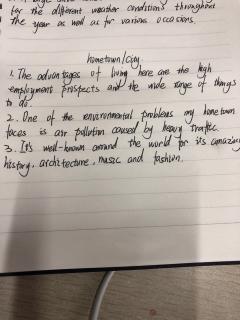 for the different weather conditions throughout
the year as well as for various occasions.
hometown/city.
1. The advantages of living here are the high
employment prospects and the wide range of things
to do.
2. One of the environmental problems my hometown
faces is air pollution caused by heavy traffic.
3. It's well-known around the world for its amazing
history, architecture, music and fashion.